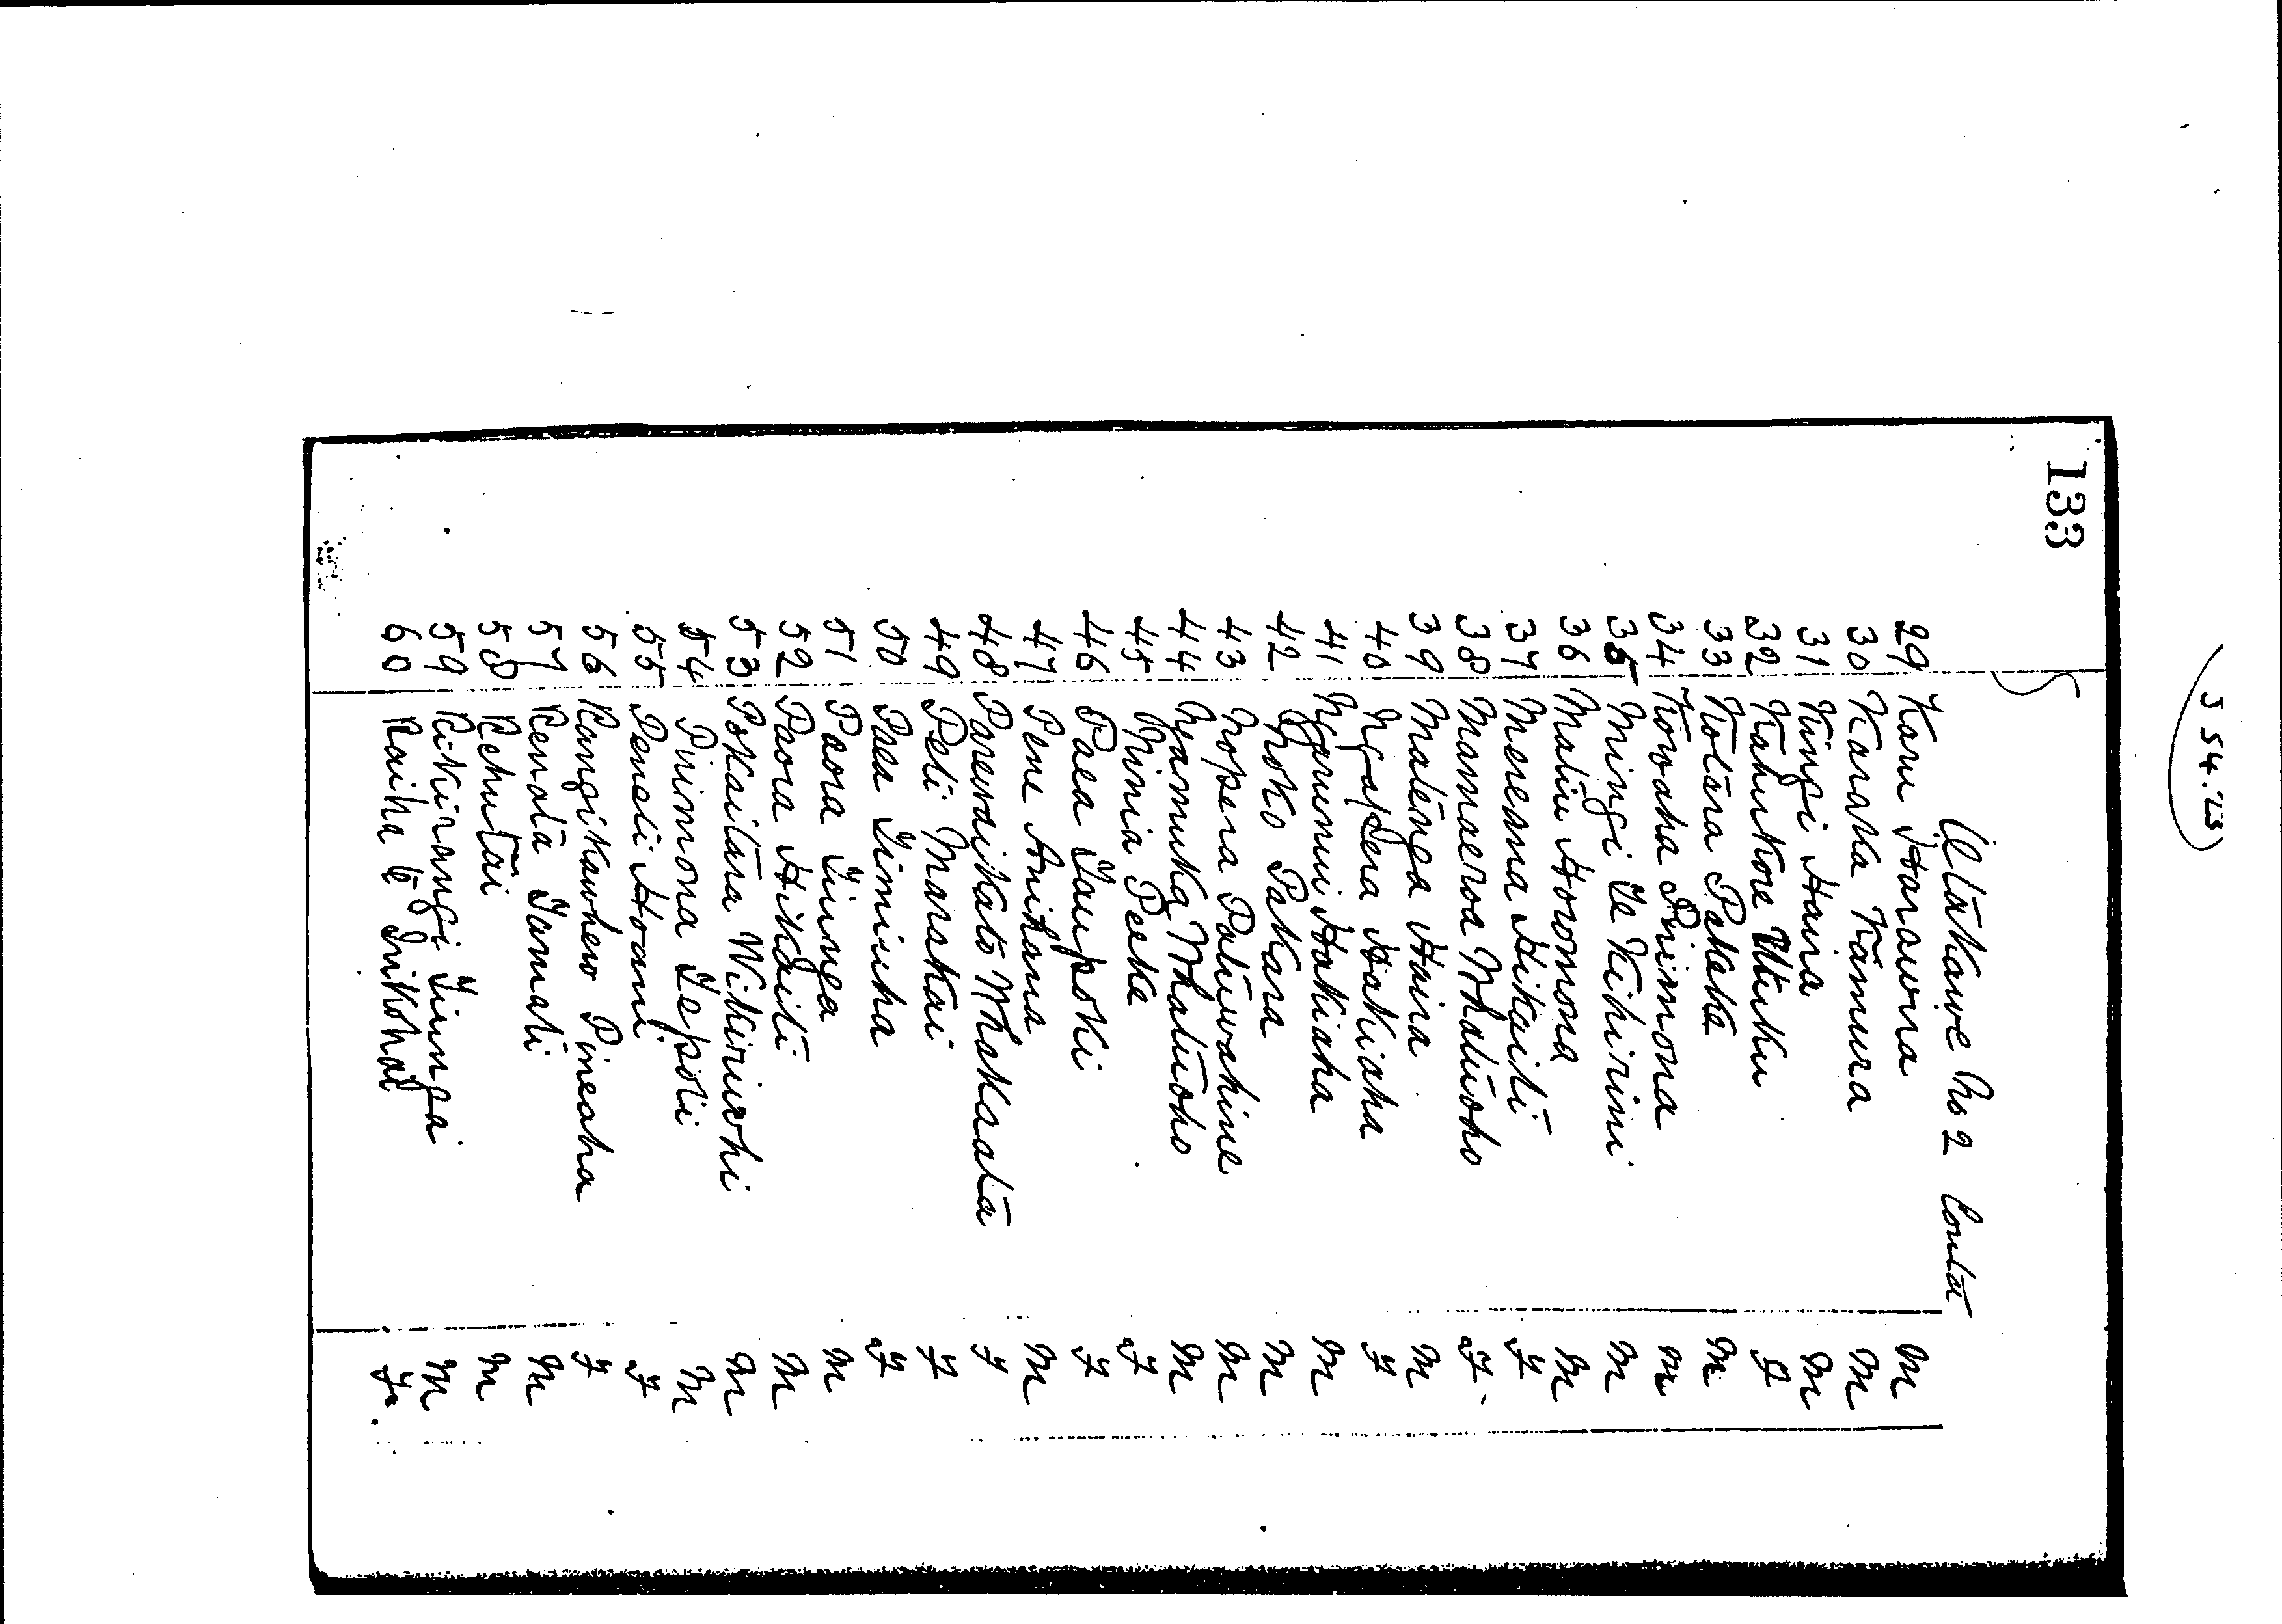 133
Otakawe No 2 Contd
29 Karu Harawira M
30 Karaka Kamura M
31 Kingi Haira M
32 Kahukore Utuku F
33 Kotara Pakaka M
34 Kowaha Pirimona M
35 Mingi Te Kihirini M
36 Matiu Horomona M
37 Mereana Hikaiti F
38 Mamaeroa Whatuoho F
39 Matenga Haira M
40 Ngapera Hakiaha F
41 Ngarumu Hakiaha M
42 Moko Pakara M
43 Nopera Patuwahine M
44 Ngamuka Whatuoho M
45 Ninia Peeke F
46 Paea Taupoki F
47 Pene Anihana M
48 Parewaikato Whakaata F
49 Peti Marakai F
50 Paea Timiuha F
51 Paora Tiunga M
52 Paora Hikaiti M
53 Pokaitara Wikiriwhi M
54 Pirimona Tepoti M
55 Peneti Hoani F
56 Rangikawhero Pineaha F
57 Renata Tamati M
58 Rehutai M
59 Rikirangi Tiunga M
60 Raiha te Inikohai F